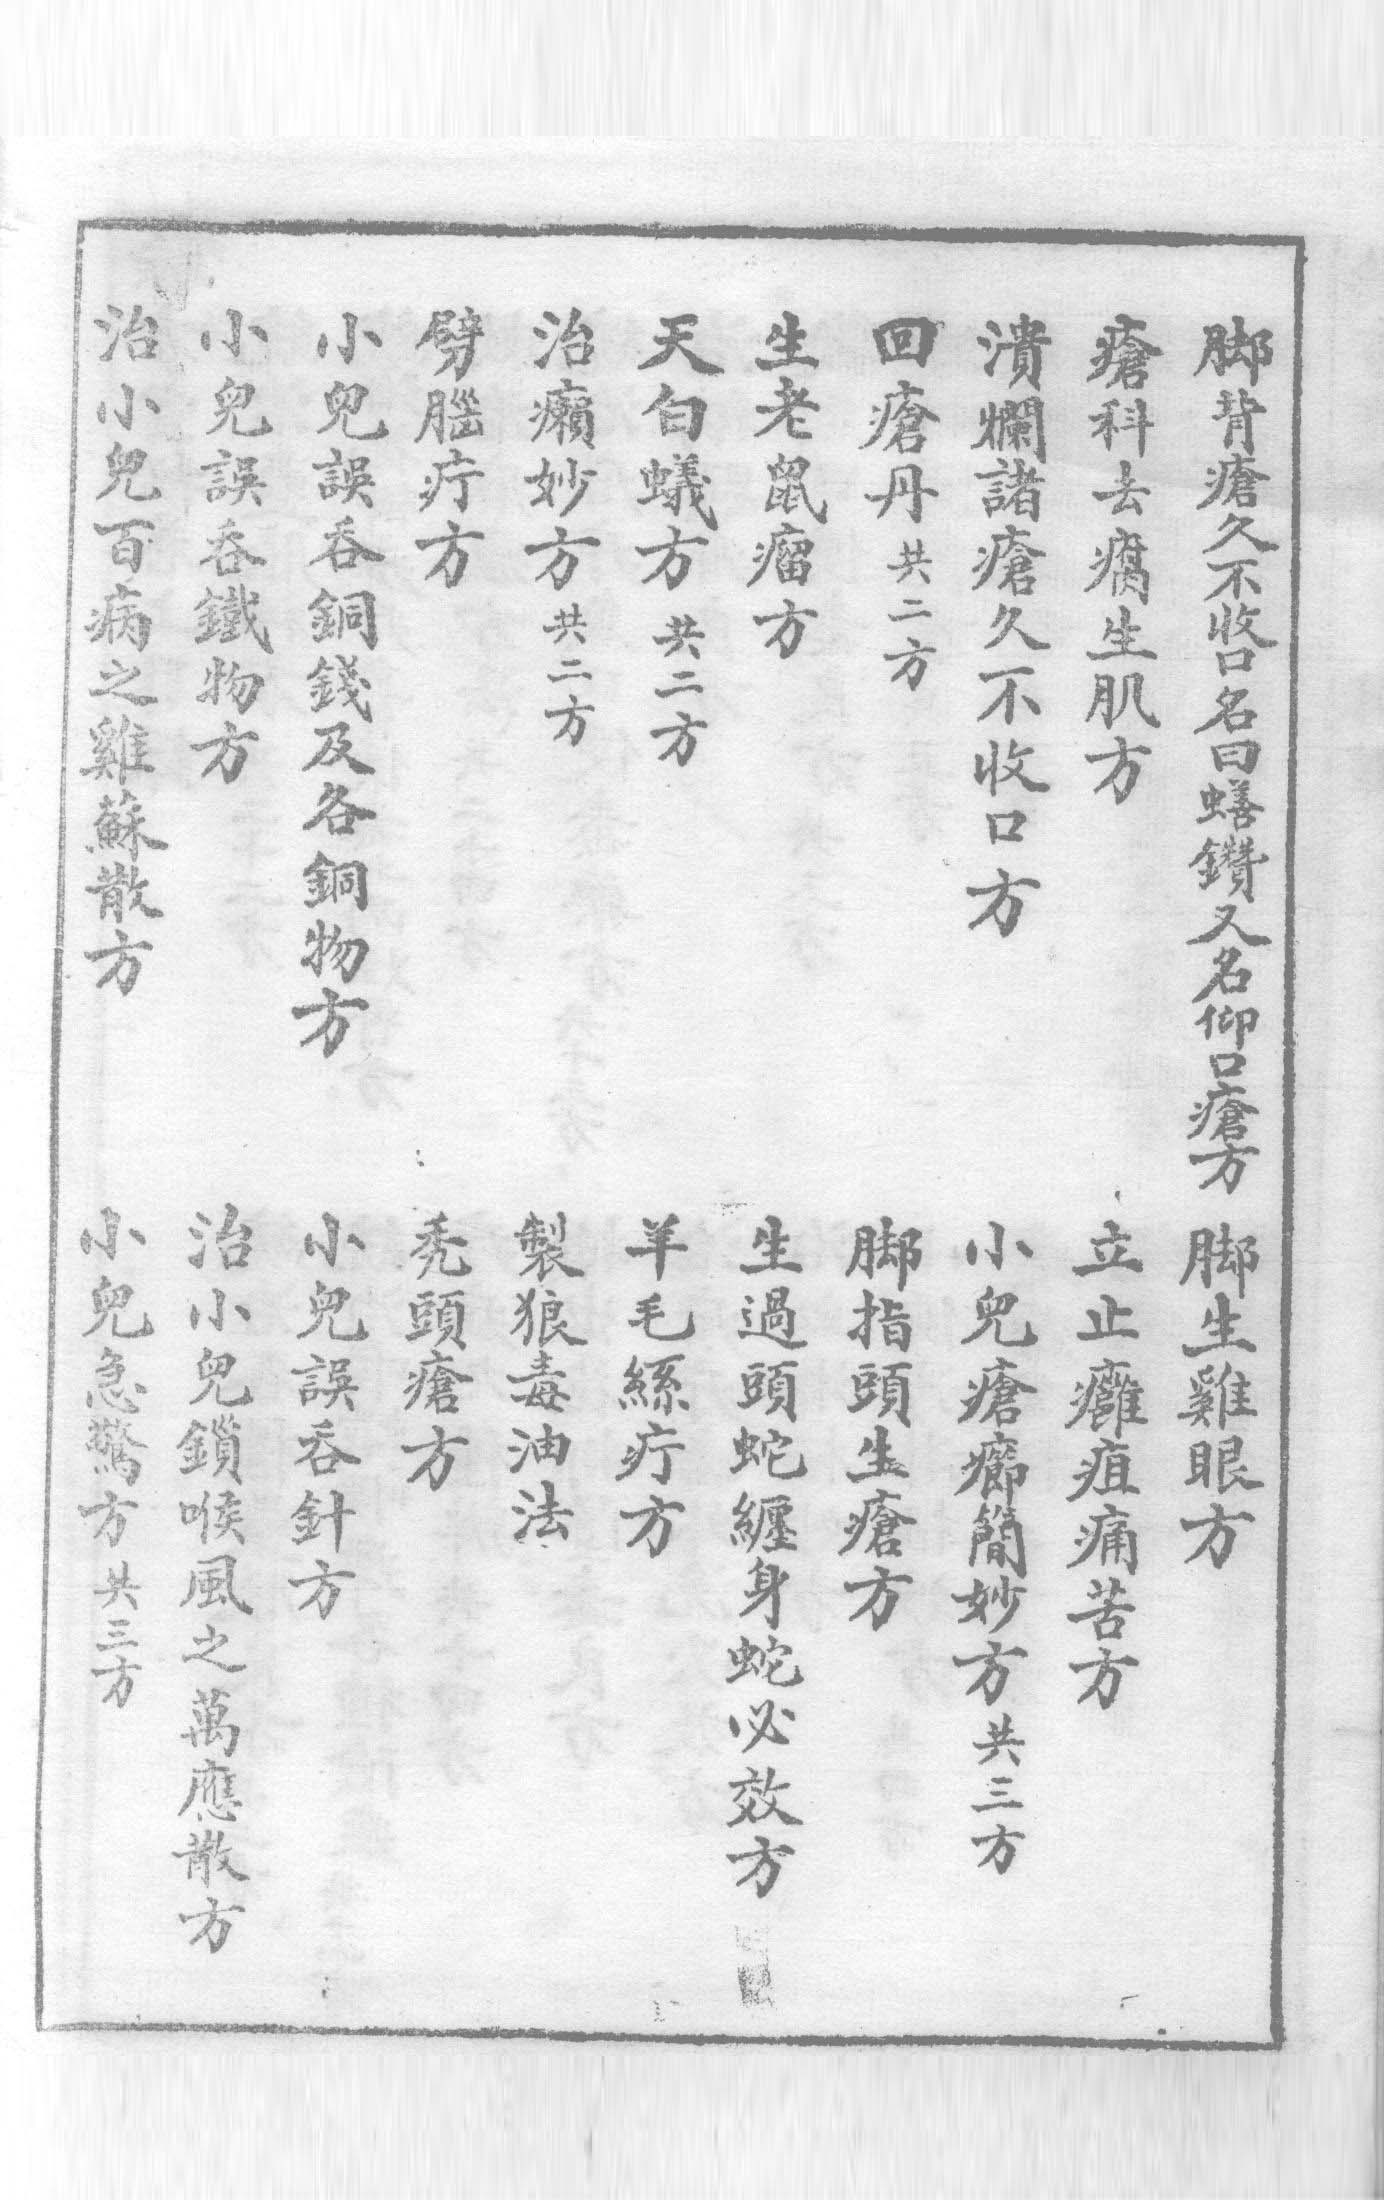 脚背瘡久不收口名曰蟮鑽又名仰口瘡方
脚生雞眼方
瘡科去腐生肌方
立止癰疽痛苦方
潰爛諸瘡久不收口方
小兒瘡癤簡妙方共三方
回瘡丹共二方
脚指頭生瘡方
生老鼠瘤方
生過頭蛇纏身蛇必效方
天白蟻方共二方
羊毛絲疔方
治癩妙方共二方
製狼毒油法
劈腦疔方
禿頭瘡方
小兒誤吞銅錢及各銅物方
小兒誤吞針方
小兒誤吞鐵物方
治小兒鎖喉風之萬應散方
治小兒百病之雞蘇散方
小兒急驚方共三方